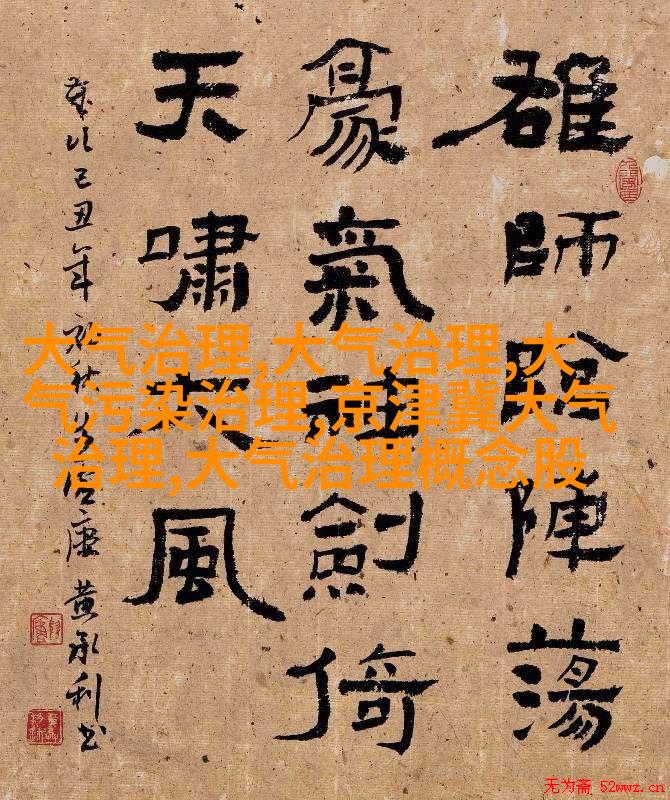 雄師陣蕩
豪氣劍倚
天嘯風
歲次己丑年初秋
黄承利书
大气治理,大气治理,大
气污染治理,京津冀大气
治理,大气治理概念股
无为斋 52wwz.cn